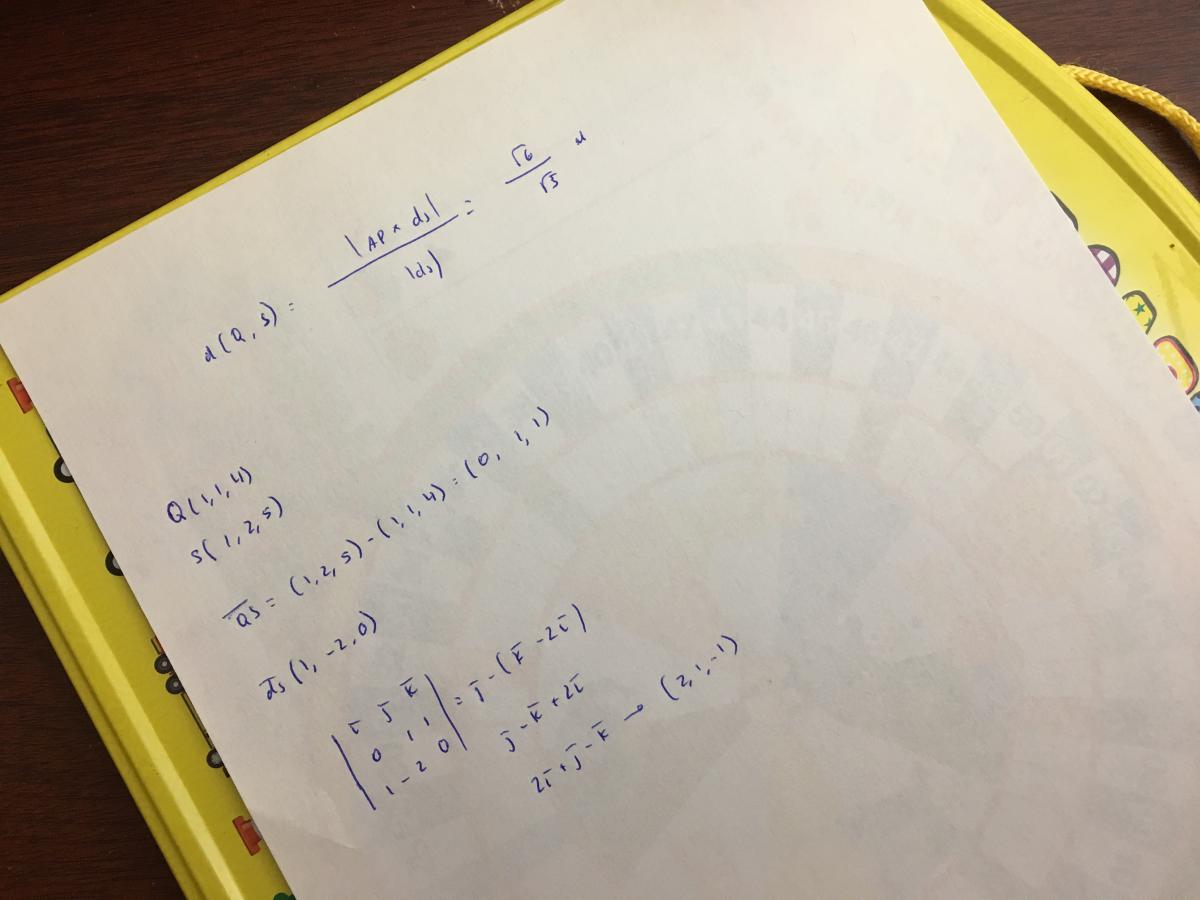 d(Q, s) = |AP × ds| / |ds| = √6 / √5 u
Q(1,1,4)
S(1,2,5)
Q̅S̅ = (1,2,5) - (1,1,4) = (0, 1, 1)
d̅s(1, -2, 0)
| i̅ j̅ k̅ |
| 0 1 1 | = j̅ - (k̅ - 2i̅)
| 1 -2 0 | j̅ - k̅ + 2i̅
2i̅ + j̅ - k̅ → (2,1,-1)